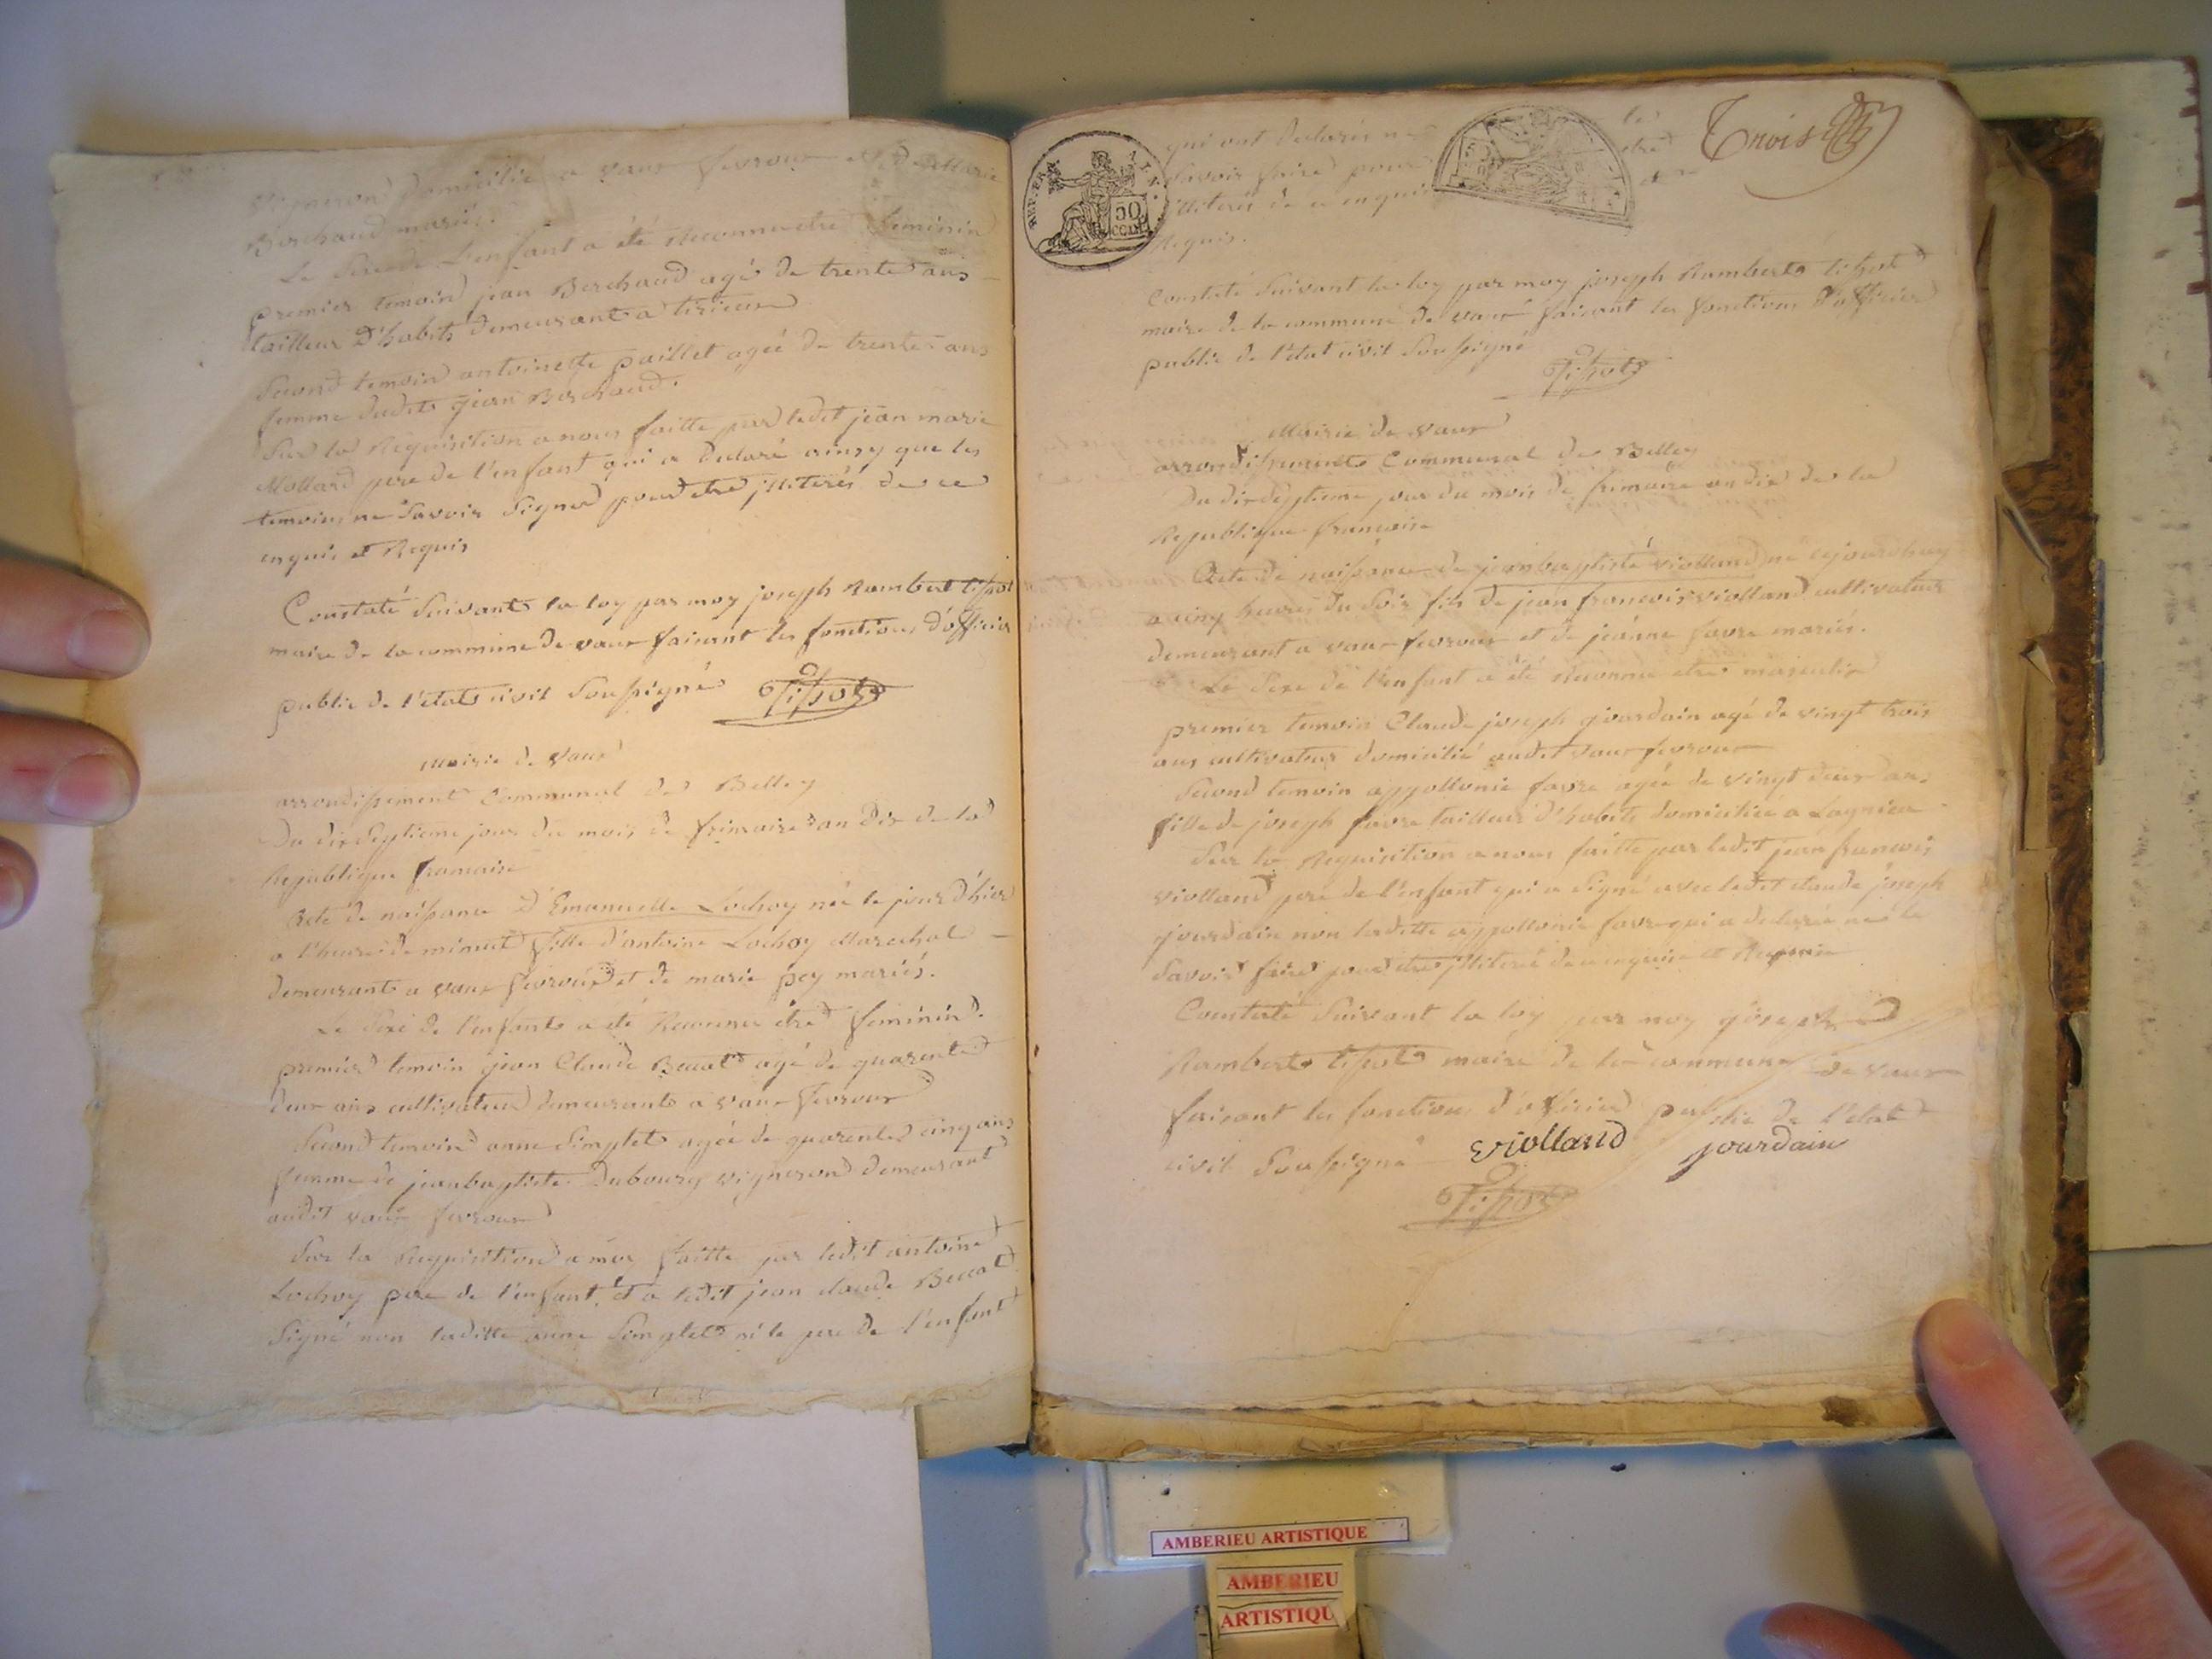 vigneron domicilié a vaux fevroux et de Marie
Berchaud mariés.
Le sexe de L'enfant a été Reconnu etre feminin
premier temoin jean Berchaud agé de trente ans
tailleur D'habits demeurant a
Second temoin antoinette paillet agée de trente ans
femme dudit jean Berchaud.
Sur la Requisition a nous faitte par ledit jean marie
Mollard pere de l'enfant qui a declaré ainsy que les
temoins ne Savoir Signer pour etre jlliterés de ce
enquis et Requis
Constaté Suivant la loy par moy joseph Rambert tissot
maire de la commune de vaux faisant les fonctions d'officier
public de l'etat civil Soussigné Tissot
Mairie de Vaux
arrondissement Communal de Belley
Du dixseptieme jour du mois de frimaire an Dix de la
Republique francaise
Acte de naissance D'Emanuelle Lochoy née le jour d'hier
a l'heure de minuit fille d'antoine Lochoy Marechal
demeurant a vaux fevroux et de marie pey mariés.
Le Sexe de l'enfant a été Reconnu etre feminin.
premier temoin jean Claude Beccat agé de quarente
deux ans cultivateur demeurant a vaux fevroux
Second temoin anne Simplet agée de quarente cinq ans
femme de jeanbaptiste Dubourg vigneron demeurant
audit vaux fevroux
Sur la Requisition a nous faitte par ledit antoine
Lochoy pere de l'enfant, et a ledit jean claude Beccat
Signé non laditte anne Simplet ni le pere de l'enfant
qui ont declarés ne
Savoir faire pour
jlliterés de ce enquis
Requis.
REP. FRA.
50
CCEN
Trois
Constaté Suivant la loy par moy joseph Rambert tissot
maire de la commune de vaux faisant les fonctions d'officier
public de l'etat civil Soussigné
Tissot
Mairie de Vaux
arrondissement Communal de Belley
Du dixseptieme jour du mois de frimaire an dix de la
Republique francaise
Acte de naissance de jeanbaptiste violland né cejourdhuy
a cinq heures du Soir fils de jean francois violland cultivateur
demeurant a vaux fevroux et de jeanne favre mariés.
Le Sexe de l'enfant a été Reconnu etre masculin
premier temoin Claude joseph jourdain agé de vingt trois
ans cultivateur domicilié audit vaux fevroux
Second temoin appollonie favre agée de vingt deux ans
fille de joseph favre tailleur d'habits domiciliée a Lagnieu
Sur la Requisition a nous faitte par ledit jean francois
violland pere de l'enfant qui a Signé avec ledit claude joseph
jourdain non laditte appollonie favre qui a declarée ne le
Savoir faire pour etre jlliteré de ce enquise et Requise
Constaté Suivant la loy par moy joseph
Rambert tissot maire de la commune de vaux
faisant les fonctions d'officier public de l'etat
civil Soussigné violland jourdain
Tissot
AMBERIEU ARTISTIQUE
AMBERIEU
ARTISTIQU